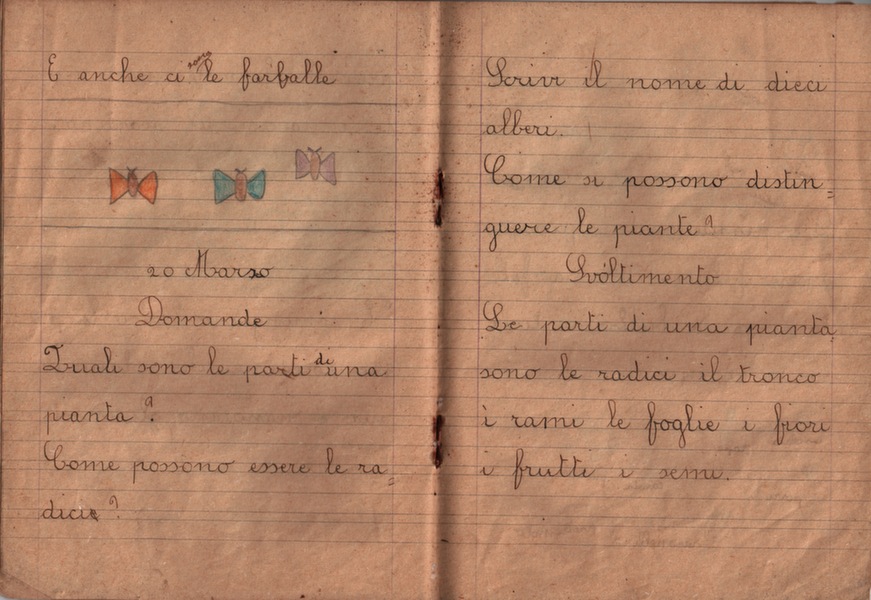 E anche ci sono le farfalle
20 Marzo
Domande
Quali sono le parti di una
pianta?
Come possono essere le ra=
dici?
Scrivi il nome di dieci
alberi.
Come si possono distin=
guere le piante?
Svoltimento
Le parti di una pianta
sono le radici il tronco
i rami le foglie i fiori
i frutti i semi.